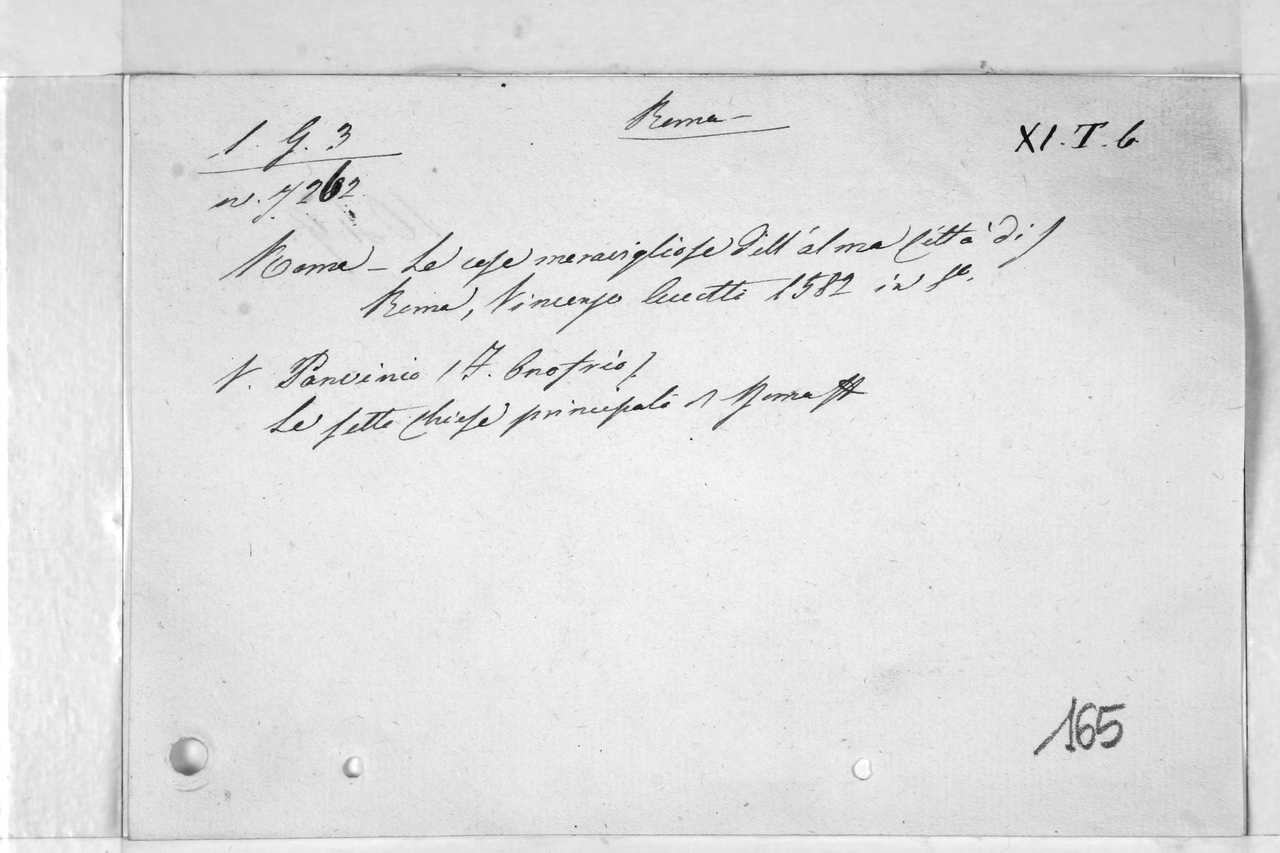 Roma —
1. G. 3
XI. T. 6
n. 7262
Roma — Le cose maravigliose dell'alma Città di
Roma, Vincenzo Lucetti 1582 in 8º.
V. Panvinio (F. Onofrio)
Le sette chiese principali Roma
165